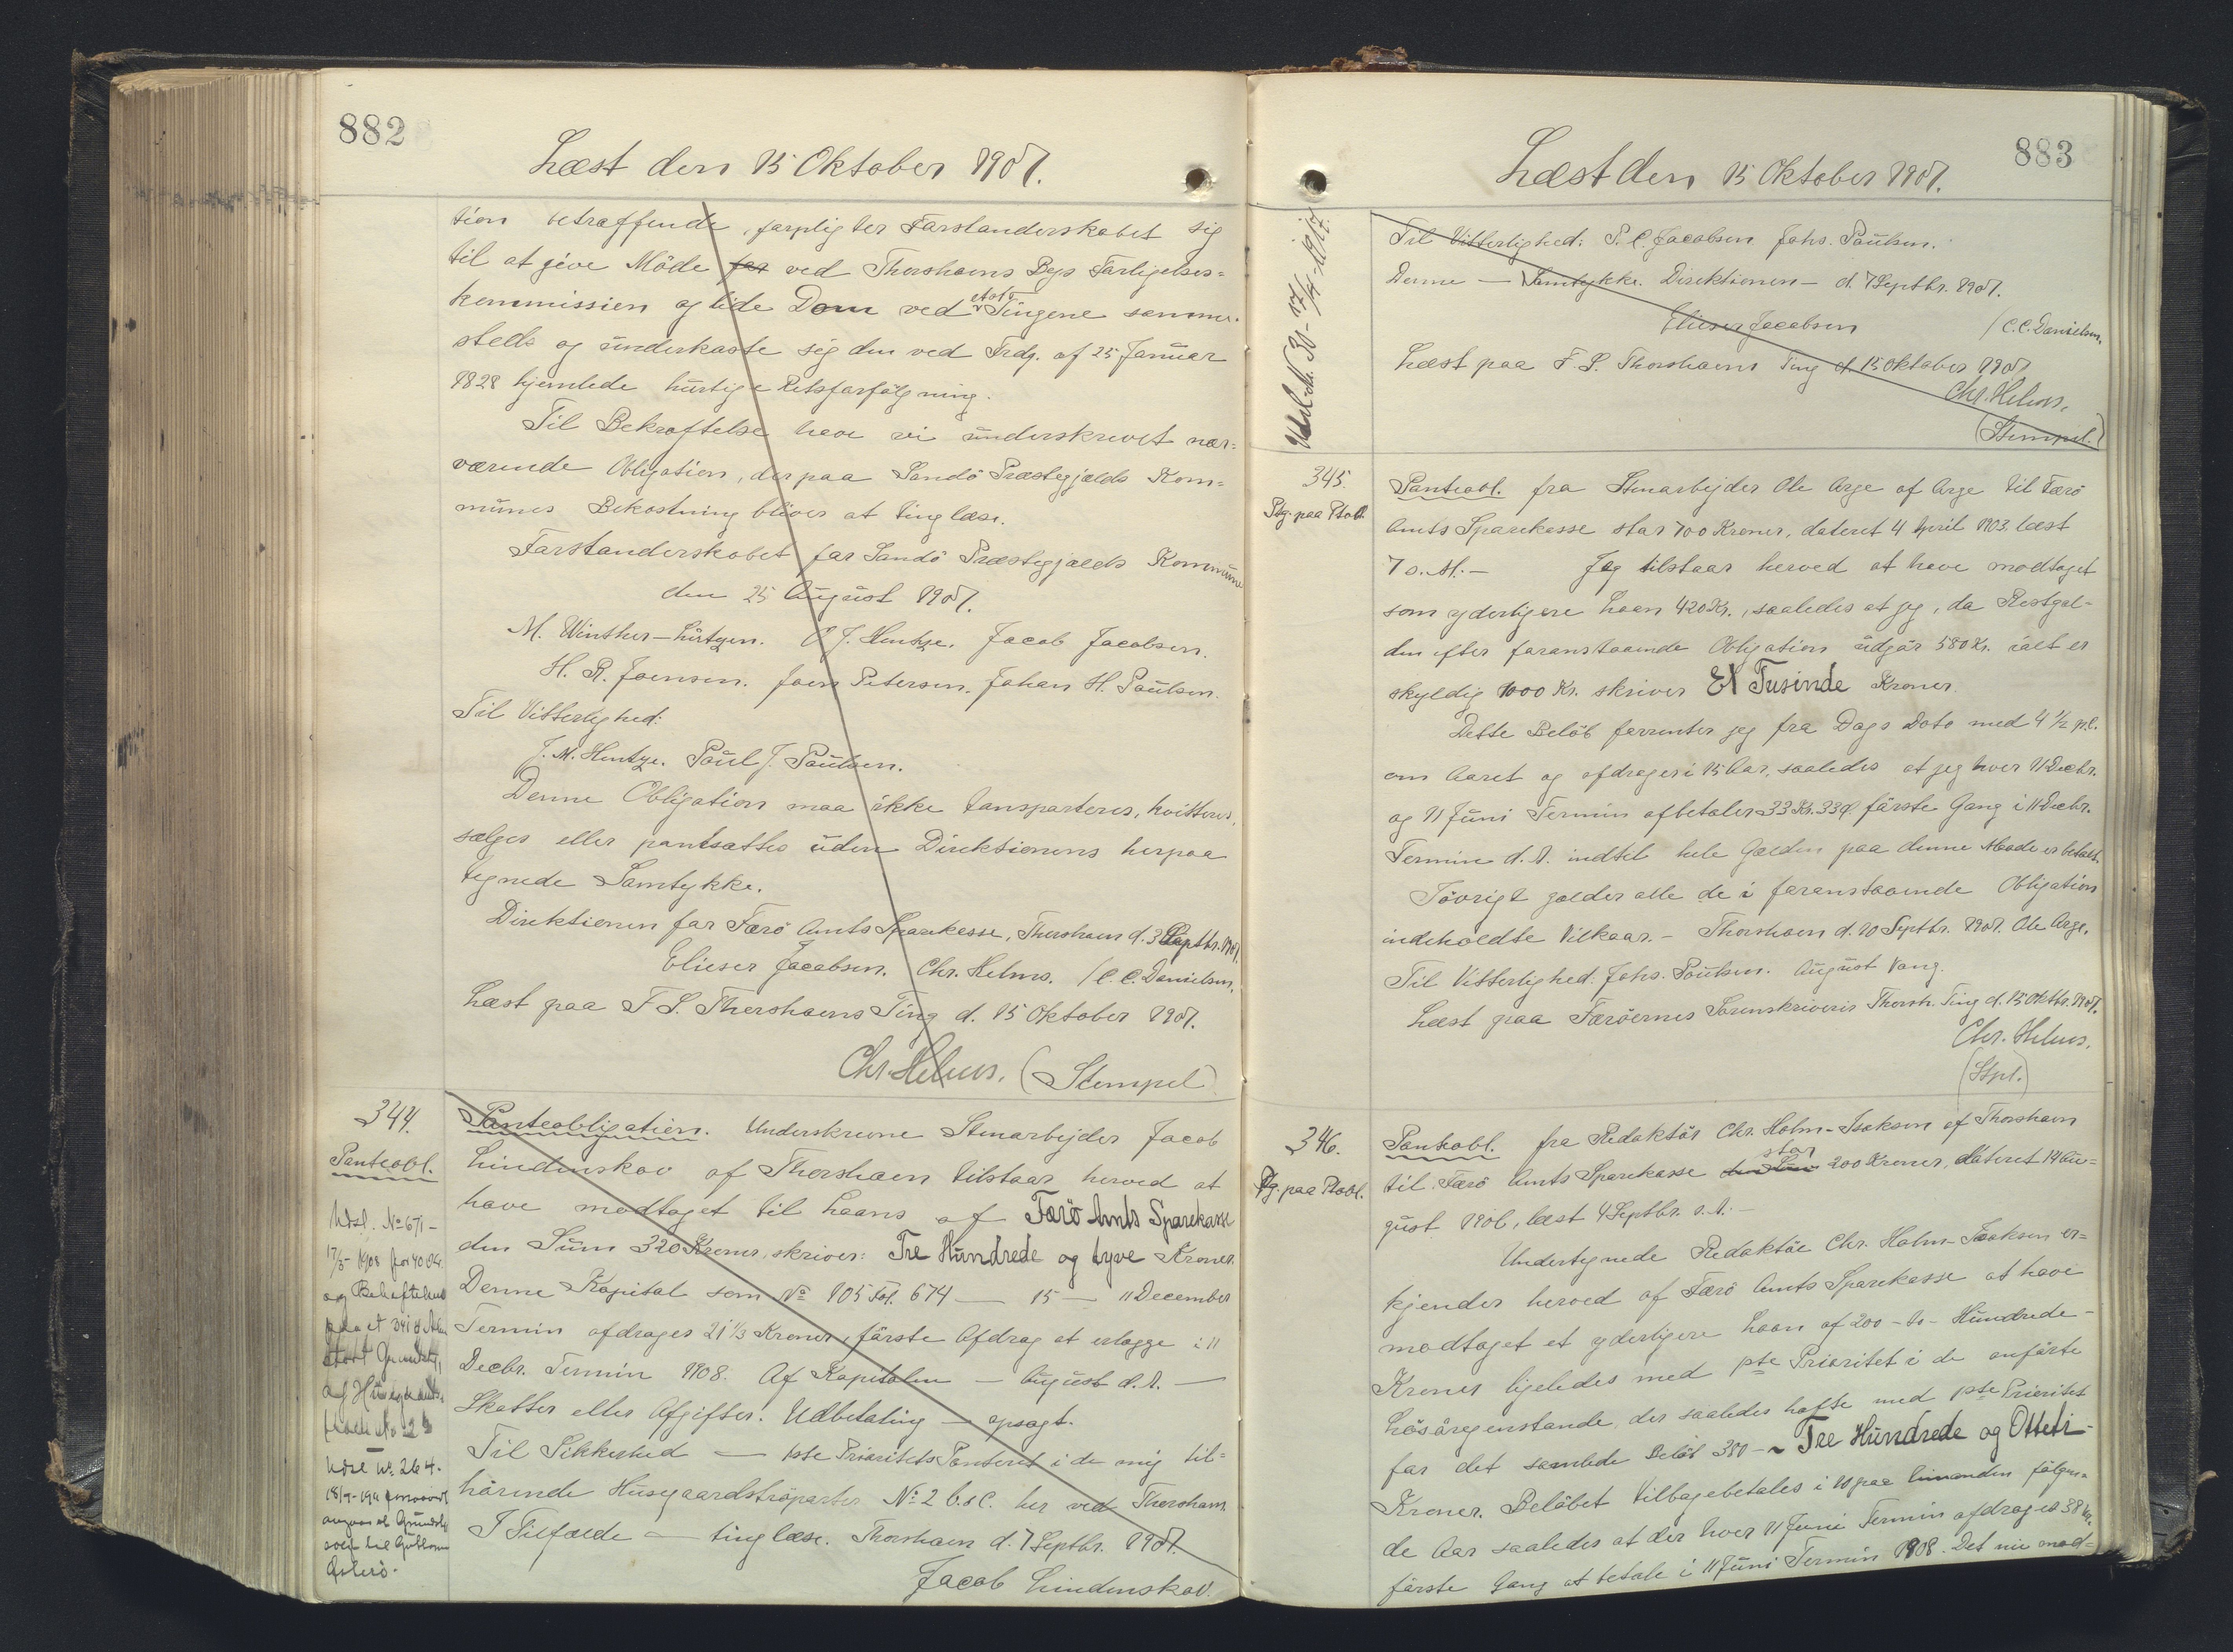 882
Læst den 15 Oktober 1907.
tion betræffende, forpligter Forstanderskabet sig
til at give Möde for ved Thorshavns Bys Forligelses=
kommission og lide Dom ved Tingene samme-
steds og underkaste sig den ved Frdg. af 25 Januar
1828 hjemlede hurtige Retsforfölgning.
Til Bekræftelse have vi underskrevet nær=
værende Obligation, der paa Sandö Præstegjælds Kom=
munes Bekostning bliver at tinglæse.
Forstanderskabet for Sandö Præstegjælds Kommune
den 25 August 1907.
M. Winther-Lützen. J. Hentze. Jacob Jacobsen.
H. R. Joensen. Joen Petersen. Johan H. Poulsen.
Til Vitterlighed:
J. M. Hentze. Poul J. Poulsen.
Denne Obligation maa ikke transporteres, kvitteres,
sælges eller pantsættes uden Direktionens herpaa
tegnede Samtykke.
Direktionen for Færö Amts Sparekasse, Thorshavn d. 3 Septbr. 1907.
Elieser Jacobsen. Chr. Helms. /C. C. Danielsen.
Læst paa F S. Thorshavns Ting d. 15 Oktober 1907.
Chr. Helms. (Stempel)
344.
Panteobl.
Udsl. No 671 -
17/3 - 1908 for 40 Kr.
og Behæftelse
Grundst.
Udsl No. 264.
Panteobligation. Underskrevne Stenarbejder Jacob
Lindenskov af Thorshavn tilstaar herved at
have modtaget til Laans af Færö Amts Sparekasse
den Sum 320 Kroner, skriver: Tre Hundrede og tyve Kroner.
Denne Kapital som No 105 Fol. 674 — 15 — 11 December
Termin afdrages 21 1/3 Kroner, förste Afdrag at erlægge i 11
Decbr. Termin 1908. Af Kapitalen — August d. A. —
Skatter eller Afgifter. Udbetaling — opsagt.
Til Sikkerhed — 1ste Prioritets Panteret i de mig til=
hörende Husegaardströparter No 2 b. & c. her ved Thorshavn
I Tilfælde — tinglæse. Thorshavn d. 7 Septbr. 1907.
Jacob Lindenskov.
883
Læst den 15 Oktober 1907.
Udsl. No. 30 - 17/4 - 1917.
Til Vitterlighed: P. C. Jacobsen Johs. Poulsen.
Denne — Samtykke. Direktionen — d. 7 Septbr. 1907.
Elieser Jacobsen /C. C. Danielsen,
Læst paa F. S. Thorshavns Ting d. 15 Oktober 1907
Chr. Helms.
(Stempel.)
345.
Ptg. paa Ptobl.
Panteobl. fra Stenarbejder Ole Arge af Arge til Færö
Amts Sparekasse stor 700 Kroner, dateret 4 April 1903, læst
7 s. M. — Jeg tilstaar herved at have modtaget
som yderligere Laan 420 Kr., saaledes at jeg, da Restgæl-
den efter foranstaaende Obligation udgör 580 Kr. ialt er
skyldig 1000 Kr. skriver Et Tusinde Kroner.
Dette Belöb forrenter jeg fra Dags Dato med 4 1/2 p.C.
om Aaret og afdrager i 15 Aar, saaledes at jeg hver 11 Decbr.
og 11 Juni Termin afbetaler 33 Kr. 33 Ø. förste Gang i 11 Decbr.
Termin d. A. indtil hele Gælden paa denne Maade er betalt.
Iövrigt gælder alle de i foranstaaende Obligation
indeholdte Vilkaar. — Thorshavn d. 10 Septbr. 1907. Ole Arge.
Til Vitterlighed. Johs. Poulsen. August Vang.
Læst paa Færöernes Sorenskriveris Thorsh. Ting d. 15 Oktbr. 1907.
Chr. Helms.
(Stpl.)
346.
Ptg. paa Ptobl.
Panteobl. fra Redaktör Chr. Holm-Isaksen af Thorshavn
til Færö Amts Sparekasse stor 200 Kroner, dateret 14 Au=
gust 1906, læst 4 Septbr. s. A. —
Undertegnede Redaktör Chr. Holm-Isaksen er=
kjender herved af Færö Amts Sparekasse at have
modtaget et yderligere Laan af 200 - to - Hundrede -
Kroner ligeledes med 1ste Prioritet i de anförte
Lösöregenstande, der saaledes hæfte med 1ste Prioritet
for det samlede Belöb 380 - ~ Tre Hundrede og Otteti -
Kroner. Belöbet tilbagebetales i 10 paa hinanden fölgen=
de Aar saaledes at der hver 11 Juni Termin afdrages 38 Kr.
förste Gang at betale i 11 Juni Termin 1908. Det nu mod=